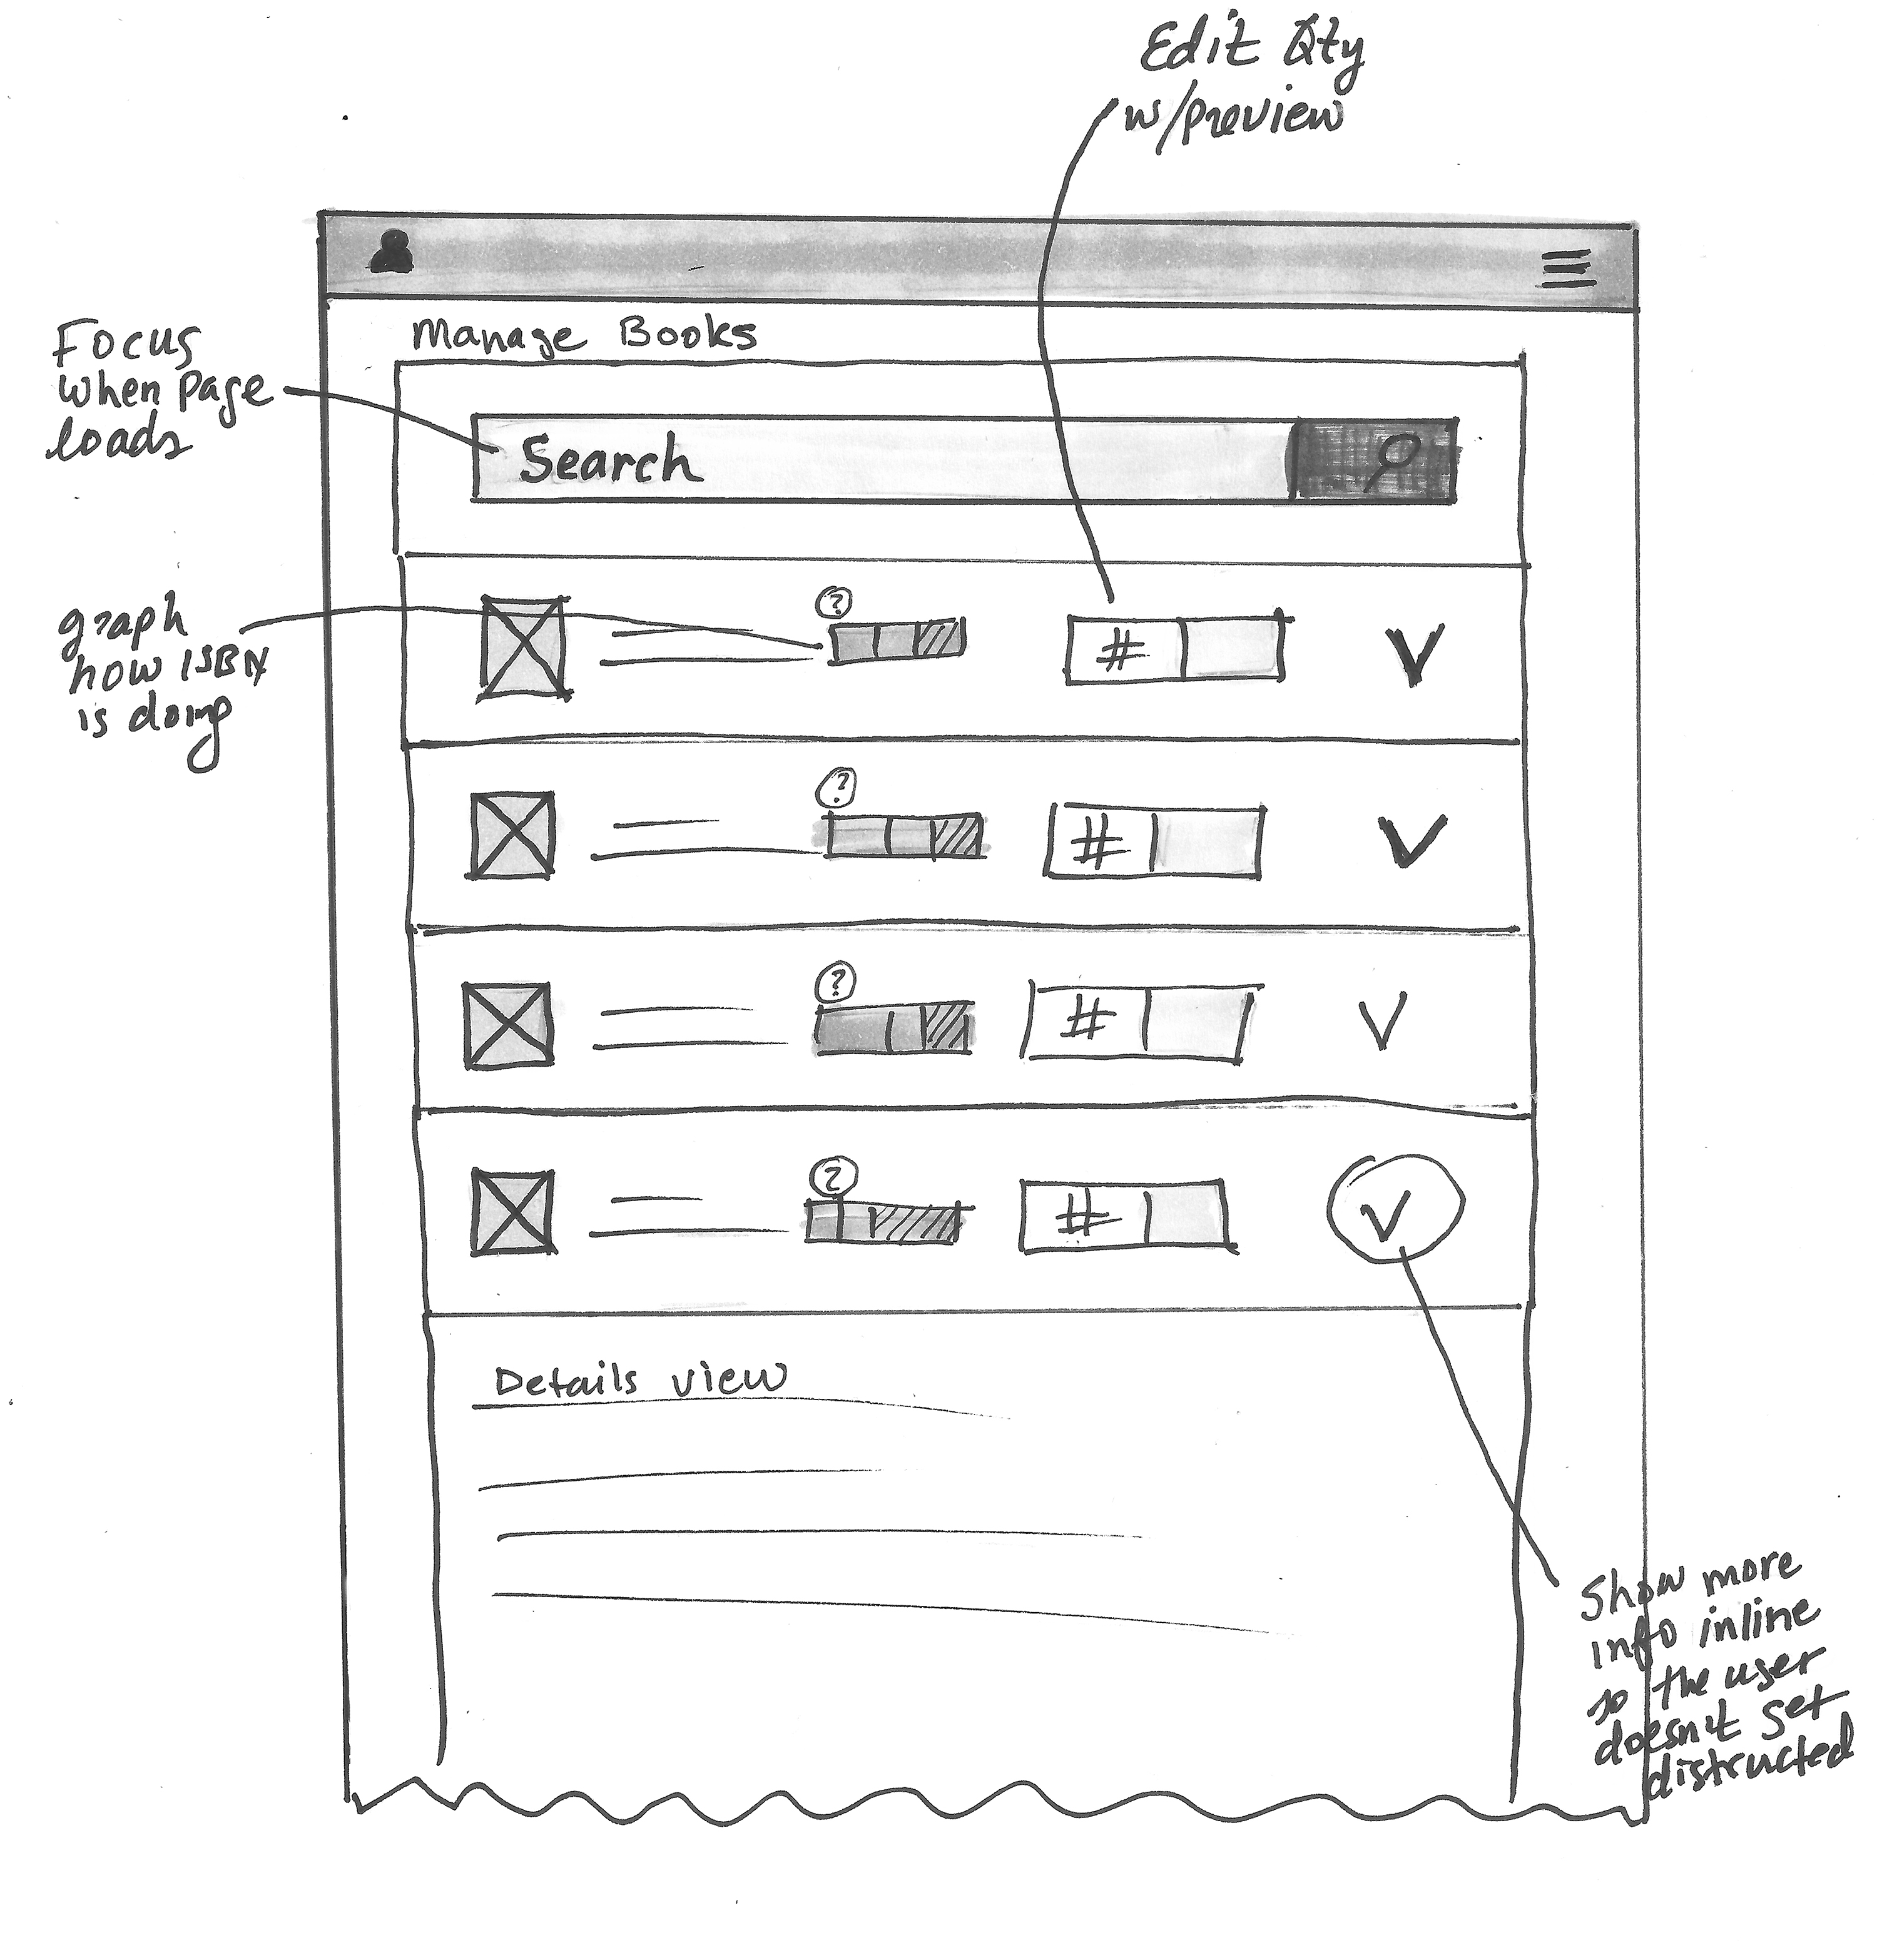 Edit Qty
w/preview
Manage Books
Focus
when page
loads
Search
graph
how ISBN
is doing
?
#
?
#
?
#
?
#
Details view
Show more
info inline
so the user
doesn't get
distructed